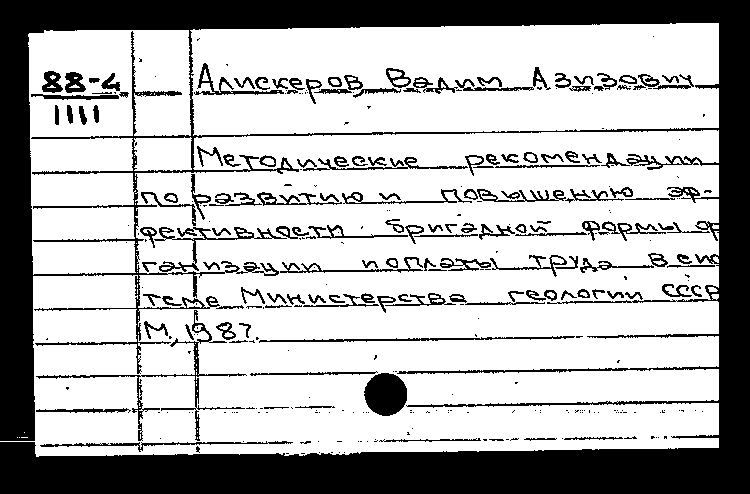 88-4 Алискеров Вадим Азизович
1111
Методические рекомендации
по развитию и повышению эф-
фективности бригадной формы ор
ганизации и оплаты труда в сис
теме Министерства геологии СССР
М, 1987.